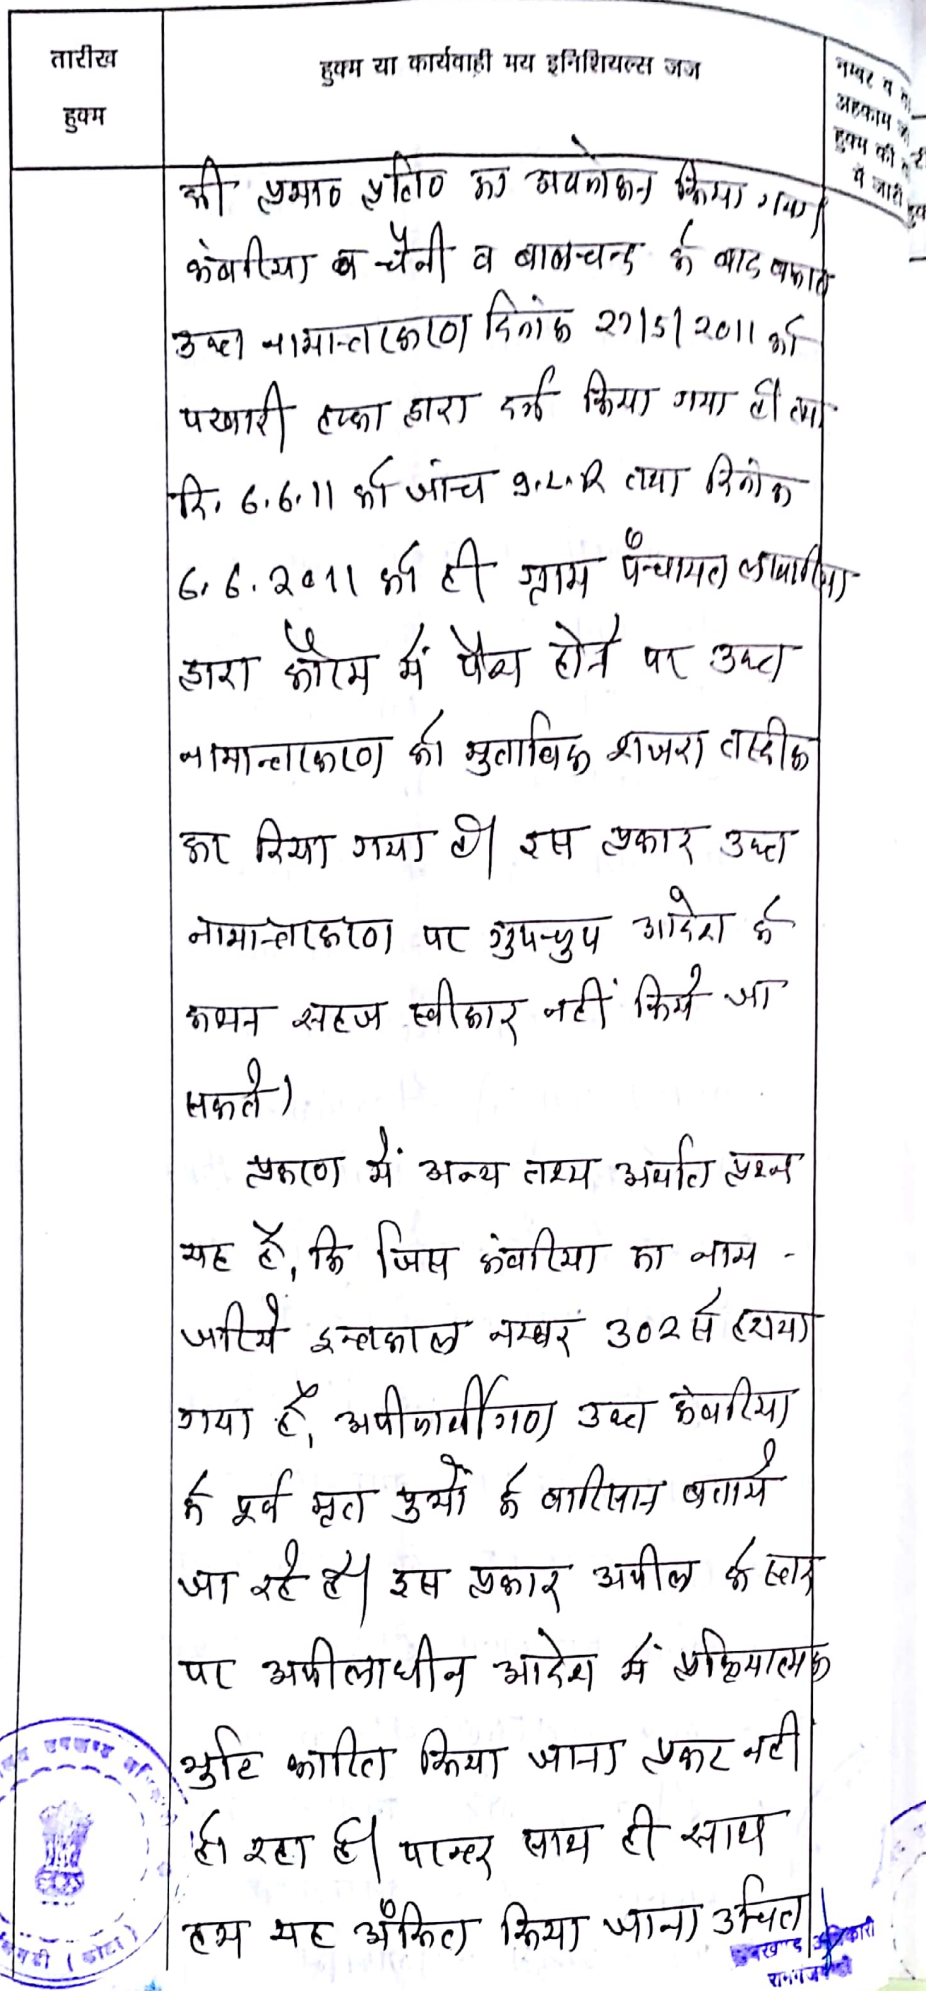 तारीख
हुक्म
हुक्म या कार्यवाही मय इनिशियल्स जज
नम्बर व
अहकाम
हुक्म की
में जारी
की प्रमा० प्रति० का अवलोकन किया गया।
केवरिया व चैनी व बालचन्द के बाद वफात
उक्त नामान्तकरण दिनांक 27/5/2011 को
पटवारी हल्का द्वारा दर्ज किया गया है। तथा
दि. 6.6.11 को जांच I.L.R तथा दिनांक
6.6.2011 को ही ग्राम पंचायत
द्वारा कोरम में पेश होने पर उक्त
नामान्तकरण को मुताबिक शजरा तस्दीक
कर दिया गया है। इस प्रकार उक्त
नामान्तकरण पर गुपचुप आदेश के
कथन सहज स्वीकार नहीं किये जा
सकते।
प्रकरण में अन्य तथ्य अर्थात प्रश्न
यह है, कि जिस केवरिया का नाम -
जरिये इन्तकाल नम्बर 302 से हटाया
गया है, अपीलार्थीगण उक्त केवरिया
के पूर्व मृत पुत्रों के वारिसान बताये
जा रहे है। इस प्रकार अपील के स्तर
पर अपीलाधीन आदेश में प्रक्रियात्मक
त्रुटि कारित किया जाना प्रकट नही
हो रहा है। परन्तु साथ ही साथ
हम यह अंकित किया जाना उचित
उपखण्ड अधिकारी
रामगंजमंडी